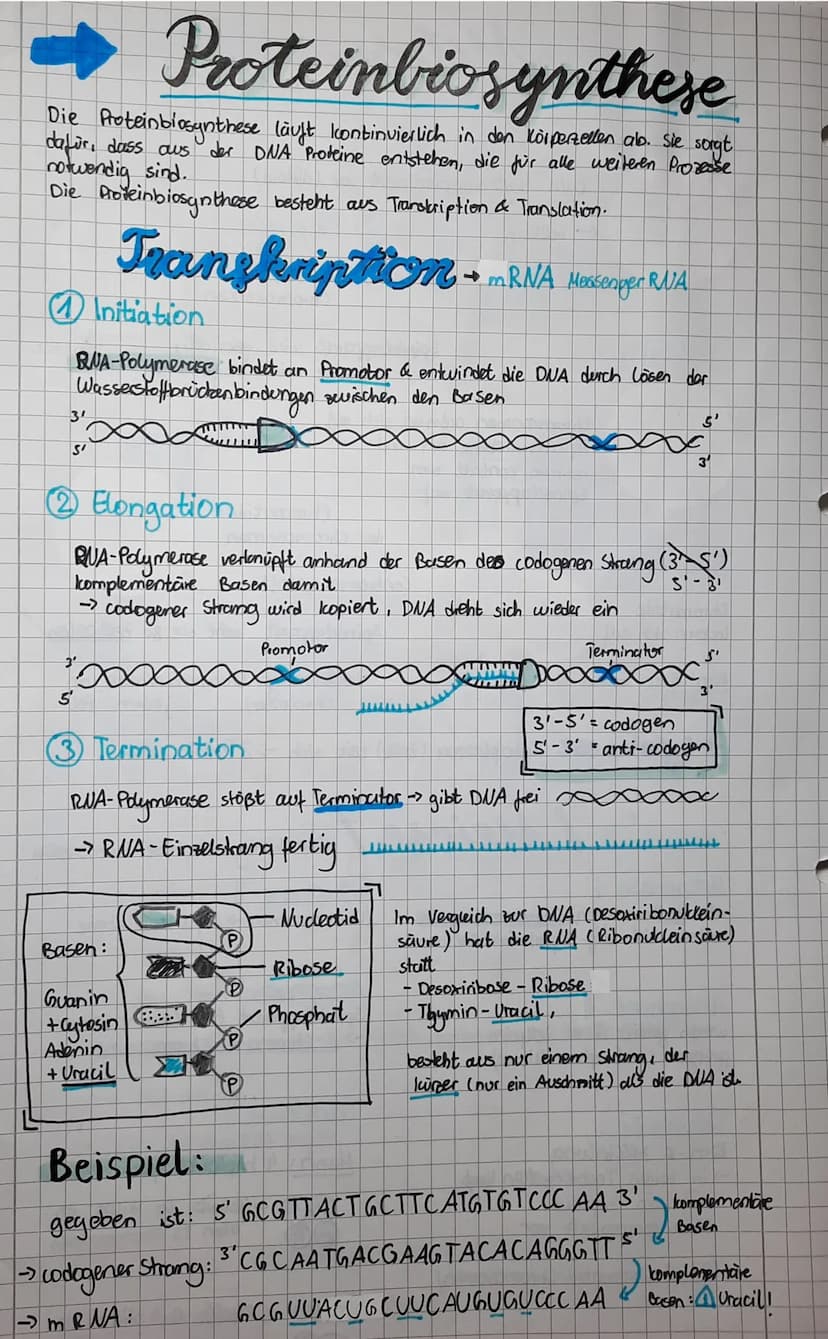 Proteinbiosynthese
Die Proteinbiosynthese läuft kontinuierlich in den Körperzellen ab. Sie sorgt
dafür, dass aus der DNA Proteine entstehen, die für alle weiteren Prozesse
notwendig sind.
Die Proteinbiosynthese besteht aus Transkription & Translation.
Transkription → mRNA Messenger RNA
① Initiation
RNA-Polymerase bindet an Promotor & entwindet die DNA durch lösen der
Wasserstoffbrückenbindungen zwischen den Basen
3' 5'
5' 3'
② Elongation
RNA-Polymerase verknüpft anhand der Basen des codogenen Strang (3'-5')
komplementäre Basen damit 5'-3'
→ codogener Strang wird kopiert, DNA dreht sich wieder ein
Promotor Terminator
3' 5'
5' 3'
3'-5' = codogen
5'-3' = anti-codogen
③ Termination
RNA-Polymerase stößt auf Terminator → gibt DNA frei
→ RNA-Einzelstrang fertig
Basen:
Guanin
+Cytosin
Adenin
+Uracil
Nucleotid
P
Ribose
P
Phosphat
P
P
Im Vergleich zur DNA (Desoxiribonuklein-
säure) hat die RNA (Ribonukleinsäure)
statt
- Desoxiribose - Ribose
- Thymin - Uracil,
besteht aus nur einem Strang, der
kürzer (nur ein Auschnitt) als die DNA ist.
Beispiel:
gegeben ist: 5' GCGTTACTGCTTCATGTGTCCC AA 3' komplementäre
Basen
→ codogener Strang: 3' CGCAATGACGAAGTACACAGGGTT 5'
komplementäre
Basen: ! Uracil!
→ mRNA: GCGUUACUGCUUCAUGUGUCCC AA